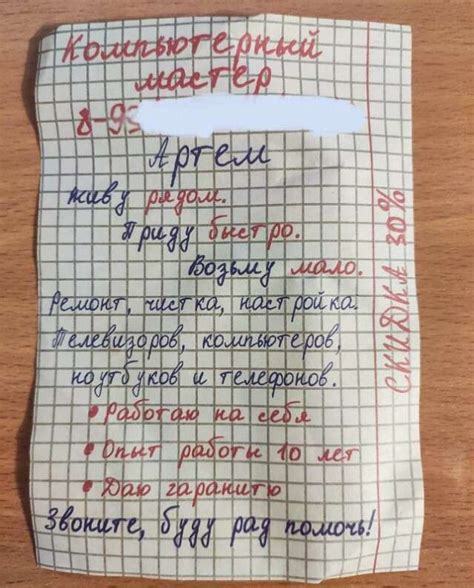 Компьютерный
мастер
8-93
Артем
живу рядом.
Приду быстро.
Возьму мало.
Ремонт, чистка, настройка.
Телевизоров, компьютеров,
ноутбуков и телефонов.
• Работаю на себя
• Опыт работы 10 лет
• Даю гаранитю
Звоните, буду рад помочь!
СКИДКА 30%